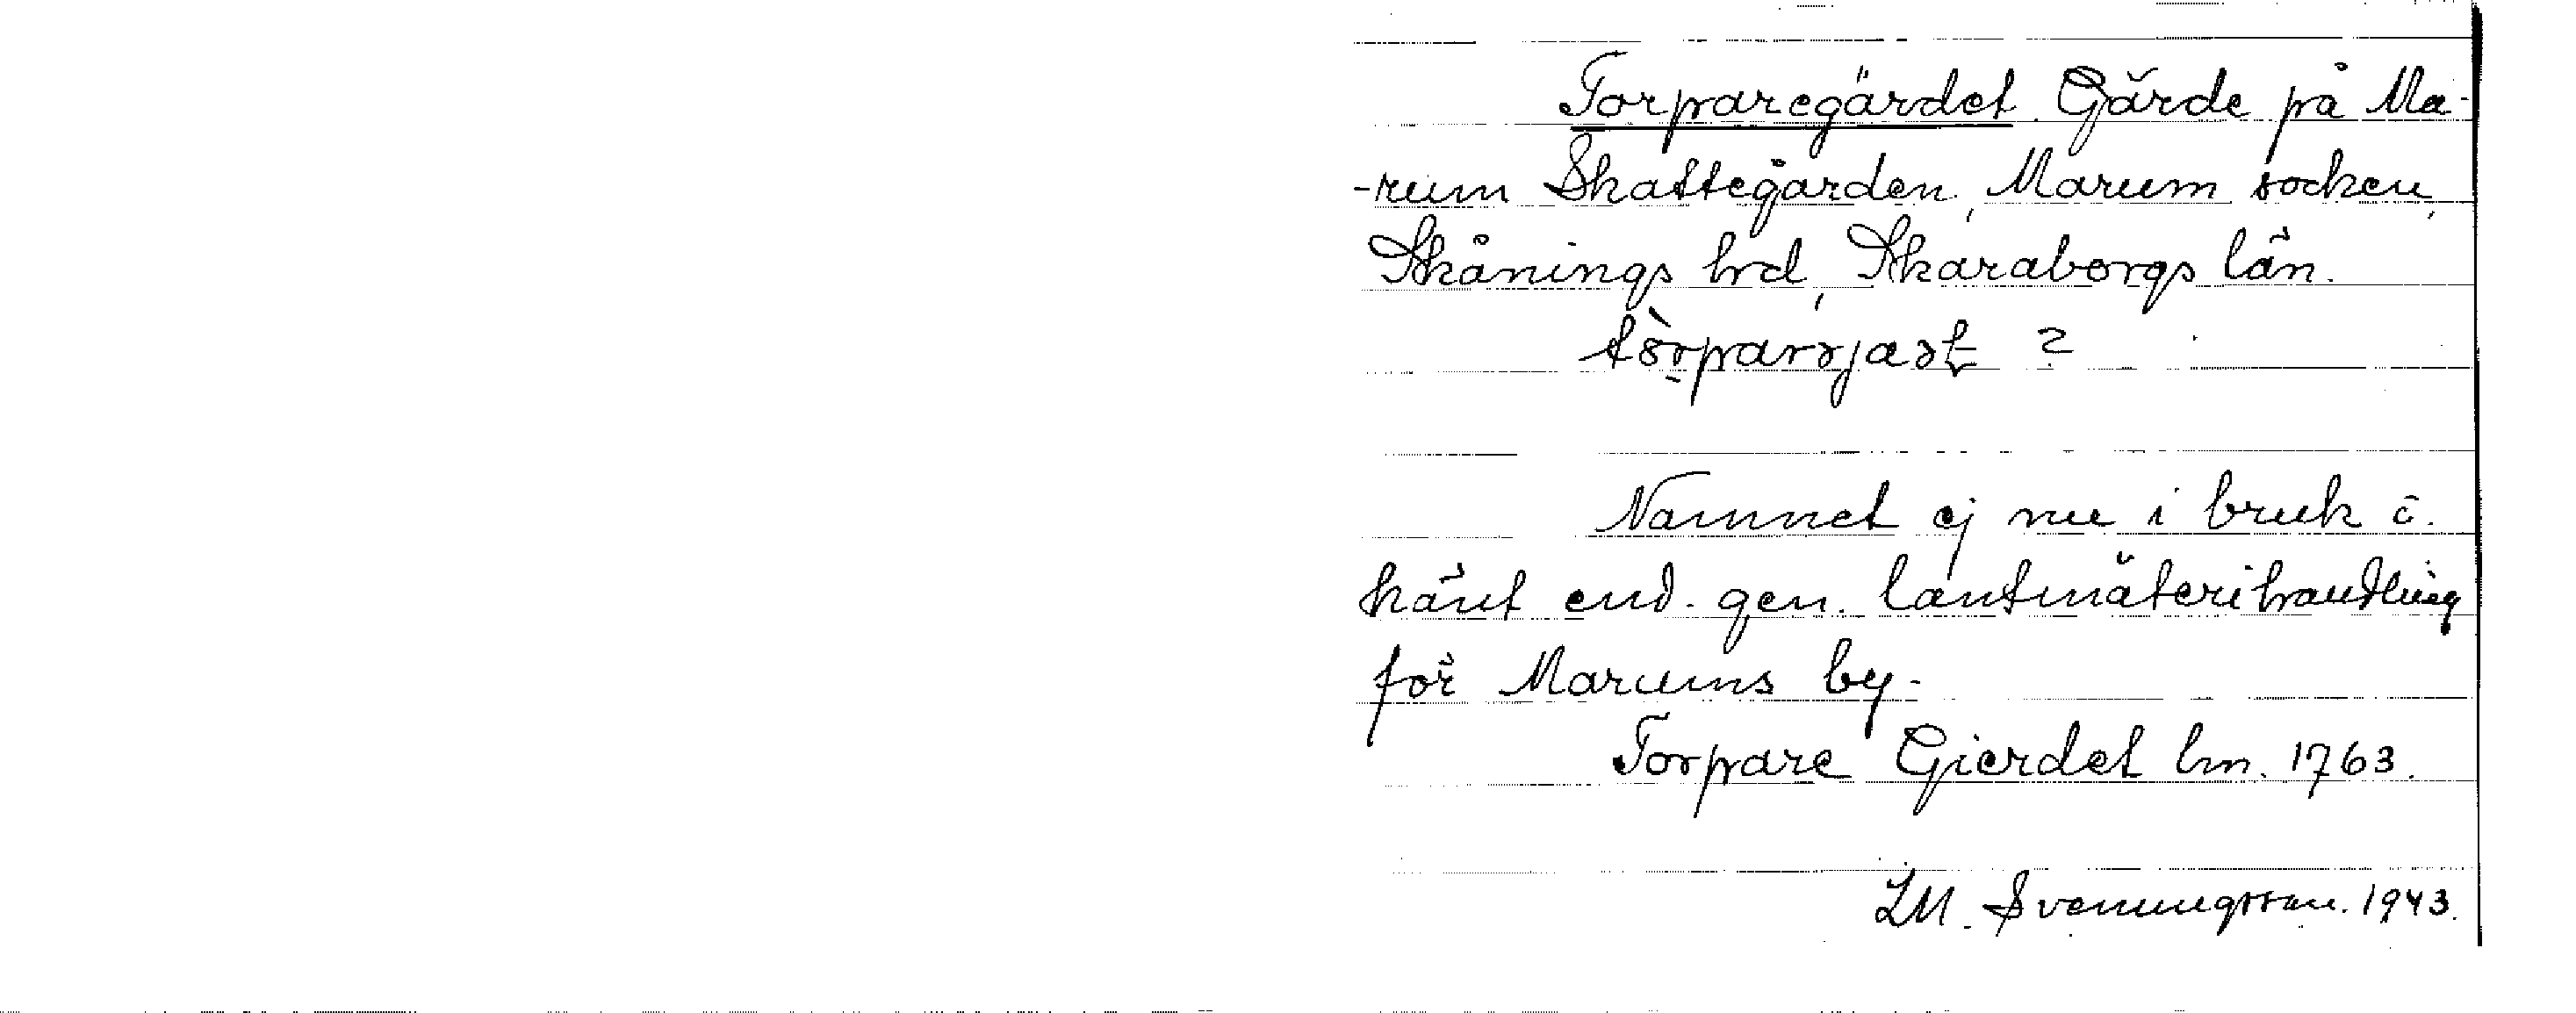 Torparegärdet. Gärde på Ma-
-rum Skattegården, Marum socken,
Skånings hrd, Skaraborgs län.
Namnet ej nu i bruk o.
känt end. gen. lantmäterihandling
för Marums by.
Torpare Gierdet lm. 1763.
LM. Svenungsson. 1943.